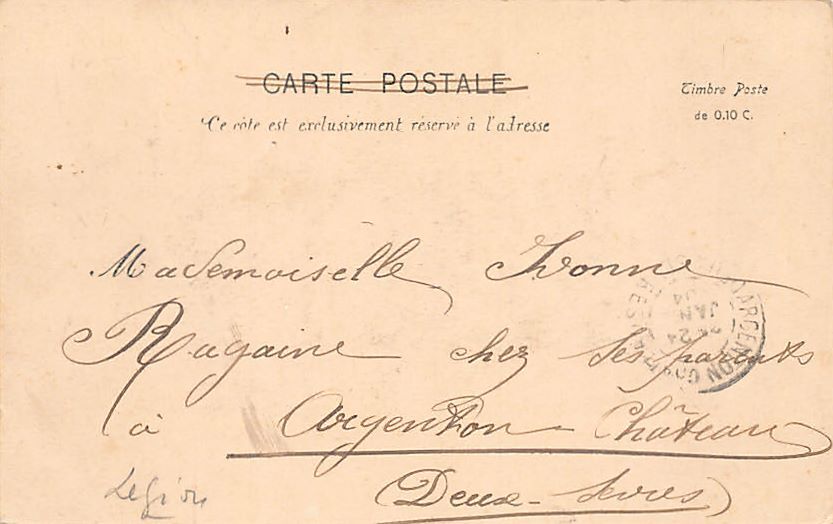 CARTE POSTALE
Ce côté est exclusivement réservé à l'adresse
Timbre Poste
de 0.10 C.
Mademoiselle Yvonne
Ragaine chez ses parents
à Argenton-Château
(Deux-Sèvres)
ARGENTON CHAT
24
JAN
04